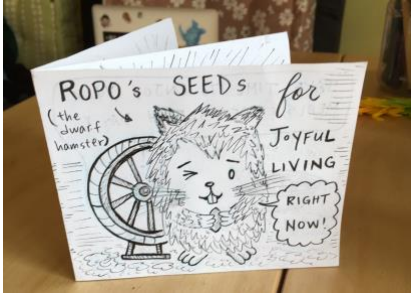 ROPO's SEEDs for
(the
dwarf
hamster)
JOYFUL
LIVING
RIGHT
NOW!